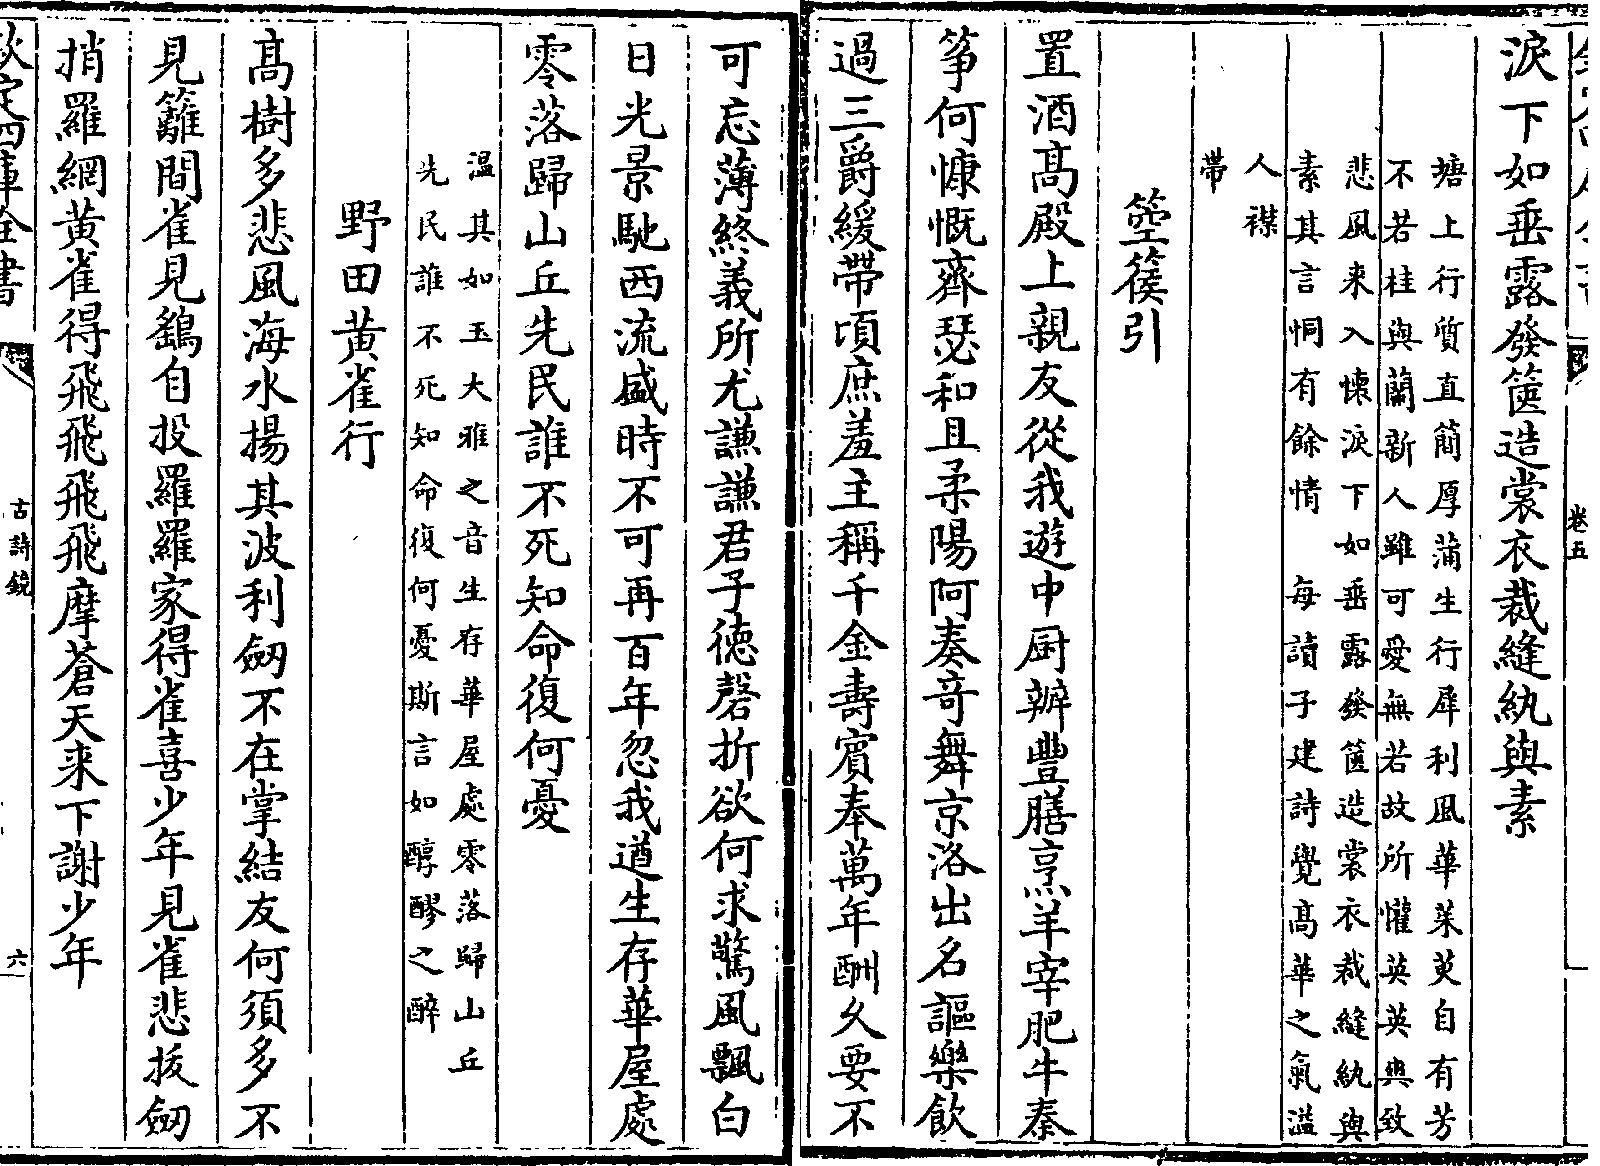 淚下如垂露發篋造裳衣裁縫紈與素
塘上行質直簡厚蒲生行犀利風華茱萸自有芳
不若桂與蘭新人雖可愛無若故所懽英英與致
悲風来入懐淚下如垂露發篋造裳衣裁縫紈與
素其言恫有餘情　每讀子建詩覺髙華之氣溢
人襟
帶
箜篌引
置酒髙殿上親友從我遊中厨辦豐膳烹羊宰肥牛秦
筝何慷慨齊瑟和且柔陽阿奏竒舞京洛出名謳樂飲
過三爵緩帶傾庶羞主稱千金壽賓奉萬年酬久要不
可忘薄終義所尤謙謙君子徳磬折欲何求驚風飄白
日光景馳西流盛時不可再百年忽我遒生存華屋處
零落歸山丘先民誰不死知命復何憂
温其如玉大雅之音生存華屋處零落歸山丘
先民誰不死知命復何憂斯言如醇醪之醉
野田黄雀行
髙樹多悲風海水揚其波利劒不在掌結友何須多不
見籬間雀見鷂自投羅羅家得雀喜少年見雀悲拔劒
捎羅網黄雀得飛飛飛飛摩蒼天来下謝少年
欽定四庫全書
古詩鏡
六
卷五